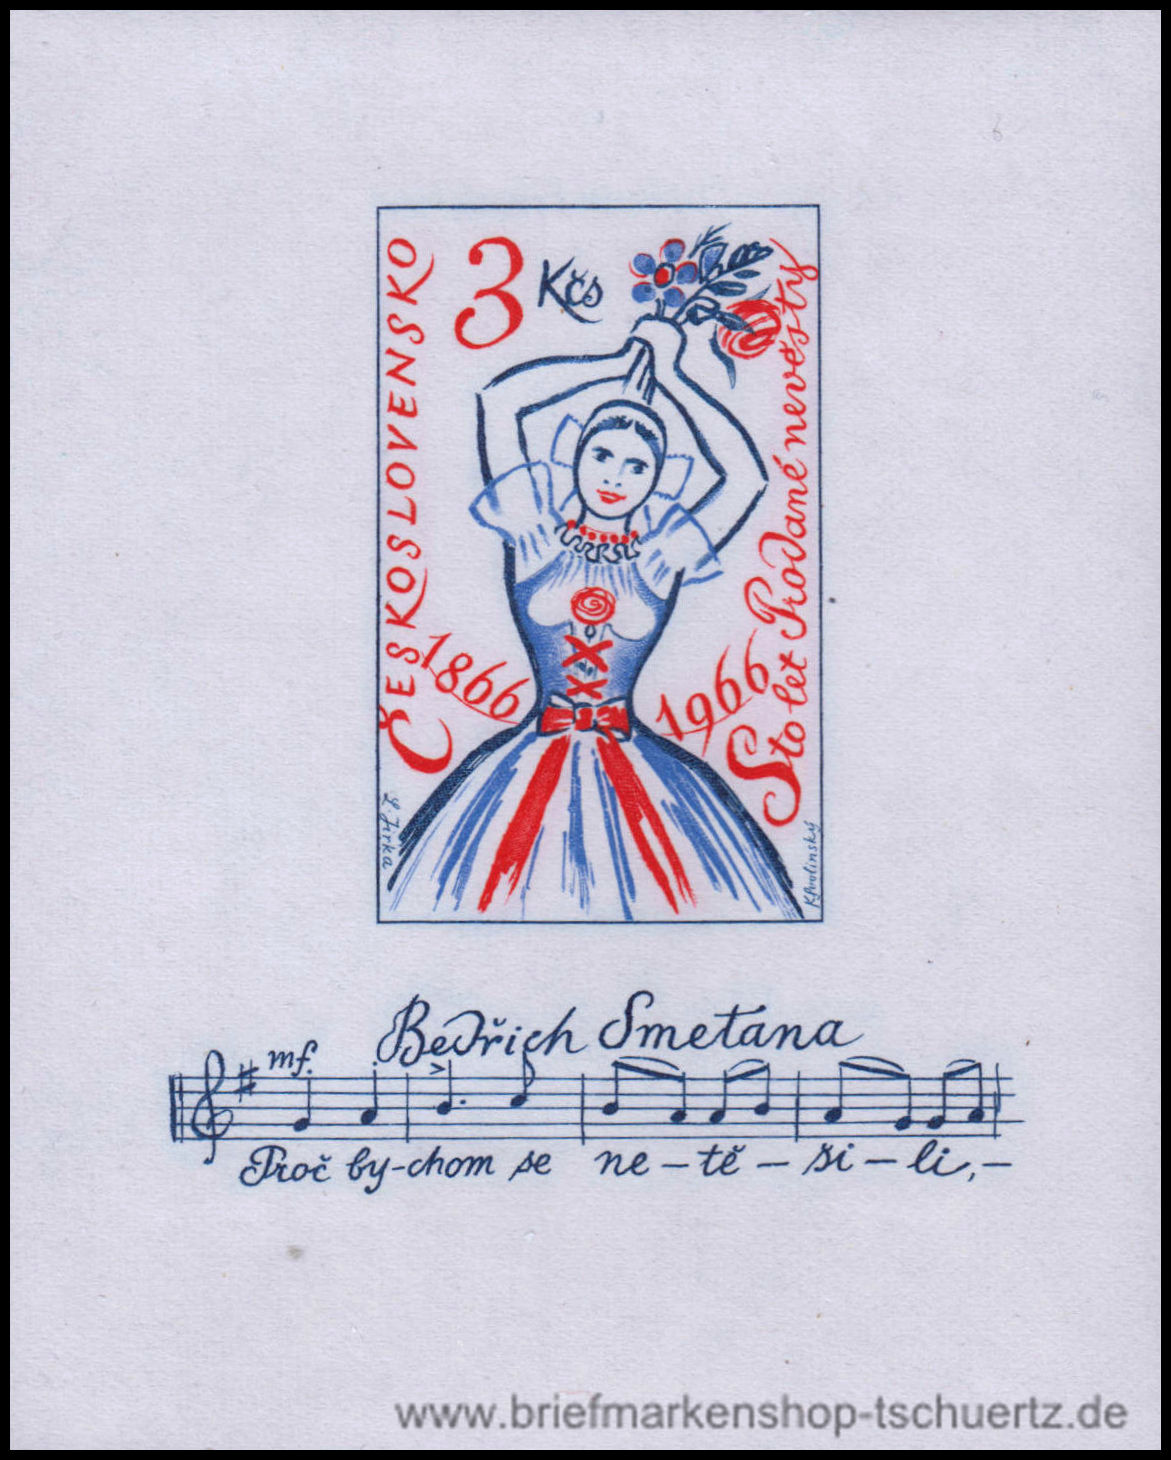 ČESKOSLOVENSKO
3 Kčs
Sto let Prodané nevěsty
1866
1966
L. Jirka
K Svolinský
Bedřich Smetana
mf.
Proč by-chom se ne-tě-ši-li,-
www.briefmarkenshop-tschuertz.de